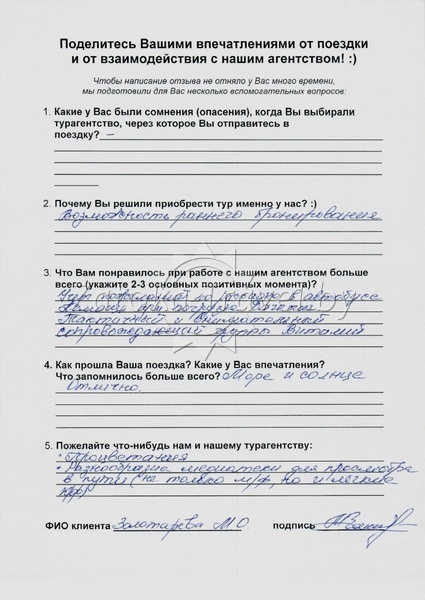 Поделитесь Вашими впечатлениями от поездки
и от взаимодействия с нашим агентством! :)
Чтобы написание отзыва не отняло у Вас много времени,
мы подготовили для Вас несколько вспомогательных вопросов:
1. Какие у Вас были сомнения (опасения), когда Вы выбирали
турагентство, через которое Вы отправитесь в
поездку? –
2. Почему Вы решили приобрести тур именно у нас? :)
Возможность раннего бронирования
3. Что Вам понравилось при работе с нашим агентством больше
всего (укажите 2-3 основных позитивных момента)?
Учет пожеланий по рассадке в автобусе
Помощь при погрузке багажа
Тактичный и внимательный
сопровождающий группы Виталий
4. Как прошла Ваша поездка? Какие у Вас впечатления?
Что запомнилось больше всего? Море и солнце
Отлично.
5. Пожелайте что-нибудь нам и нашему турагентству:
• Процветания
• Разнообразие медиатеки для просмотра
в пути (не только м/ф, но и легкие
ФИО клиента Золотарева М О подпись